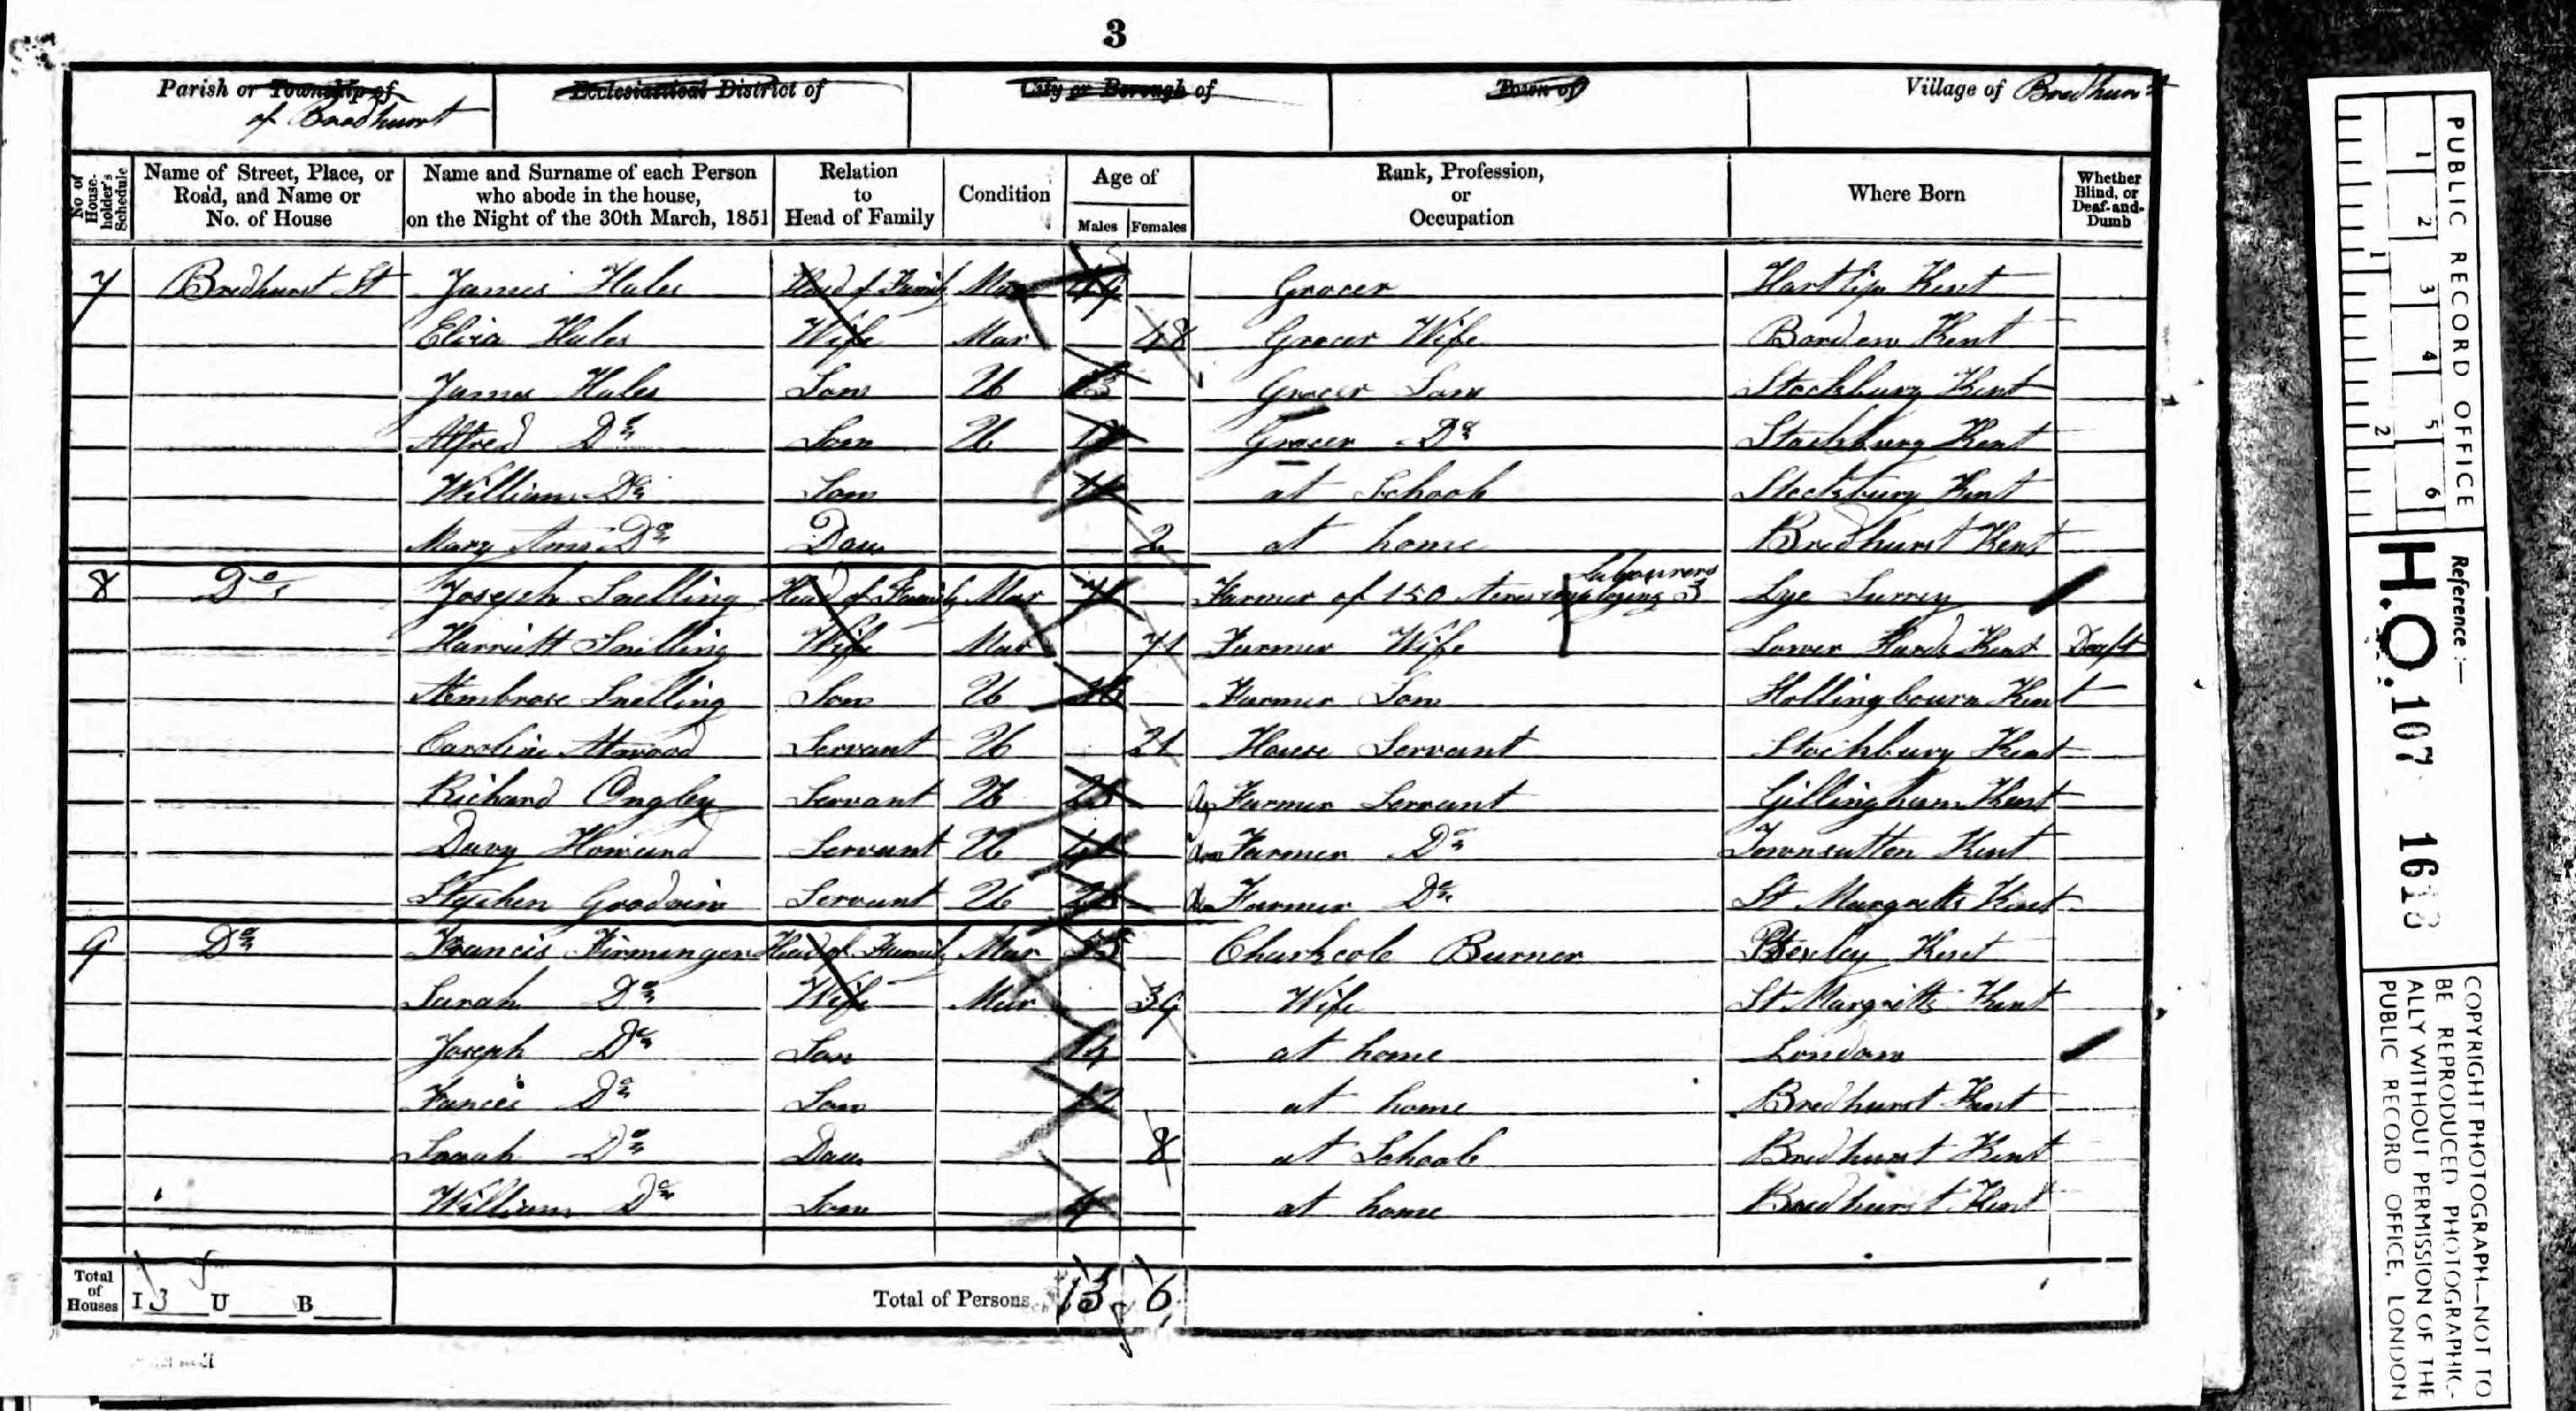 3
Parish or Township of
of Bredhurst
Ecclesiastical District of
City or Borough of
Town of
Village of Bredhurst
No of House-holder's Schedule
Name of Street, Place, or Road, and Name or No. of House
Name and Surname of each Person who abode in the house, on the Night of the 30th March, 1851
Relation to Head of Family
Condition
Age of
Males Females
Rank, Profession, or Occupation
Where Born
Whether Blind, or Deaf-and-Dumb
7 Bredhurst St James Hales Head of Family Mar 49 Grocer Hartlip Kent
Eliza Hales Wife Mar 48 Grocer Wife Borden Kent
James Hales Son U Grocer Son Stockbury Kent
Alfred Do Son U Grocer Do Stockbury Kent
William Do Son at School Stockbury Kent
Mary Ann Do Dau 2 at home Bredhurst Kent
8 Do Joseph Snelling Head of Family Mar Farmer of 150 Acres employing 3 Labourers Lye Surrey
Harriett Snelling Wife Mar 71 Farmer Wife Lower Hards Kent Deaft
Ambrose Snelling Son U Farmer Son Hollingbourn Kent
Caroline Atwood Servant U 21 House Servant Stockbury Kent
Richard Ongley Servant U Farmer Servant Gillingham Kent
Davy Servant U Farmer Do Townsutton Kent
Stephen Goodwin Servant U Farmer Do St Margretts Kent
9 Do Francis Firminger Head of Family Mar Charkcole Burner Bexley Kent
Sarah Do Wife Mar 39 Wife St Margretts Kent
Joseph Do Son 14 at home London
Fances Do Son 11 at home Bredhurst Kent
Sarah Do Dau 8 at School Bredhurst Kent
William Do Son 4 at home Bredhurst Kent
Total of Houses I 3 U B Total of Persons 13 6
PUBLIC RECORD OFFICE
1 2 3 4 5 6
1 2
Reference :-
H.O. 107 1618
COPYRIGHT PHOTOGRAPH—NOT TO
BE REPRODUCED PHOTOGRAPHIC-
ALLY WITHOUT PERMISSION OF THE
PUBLIC RECORD OFFICE, LONDON